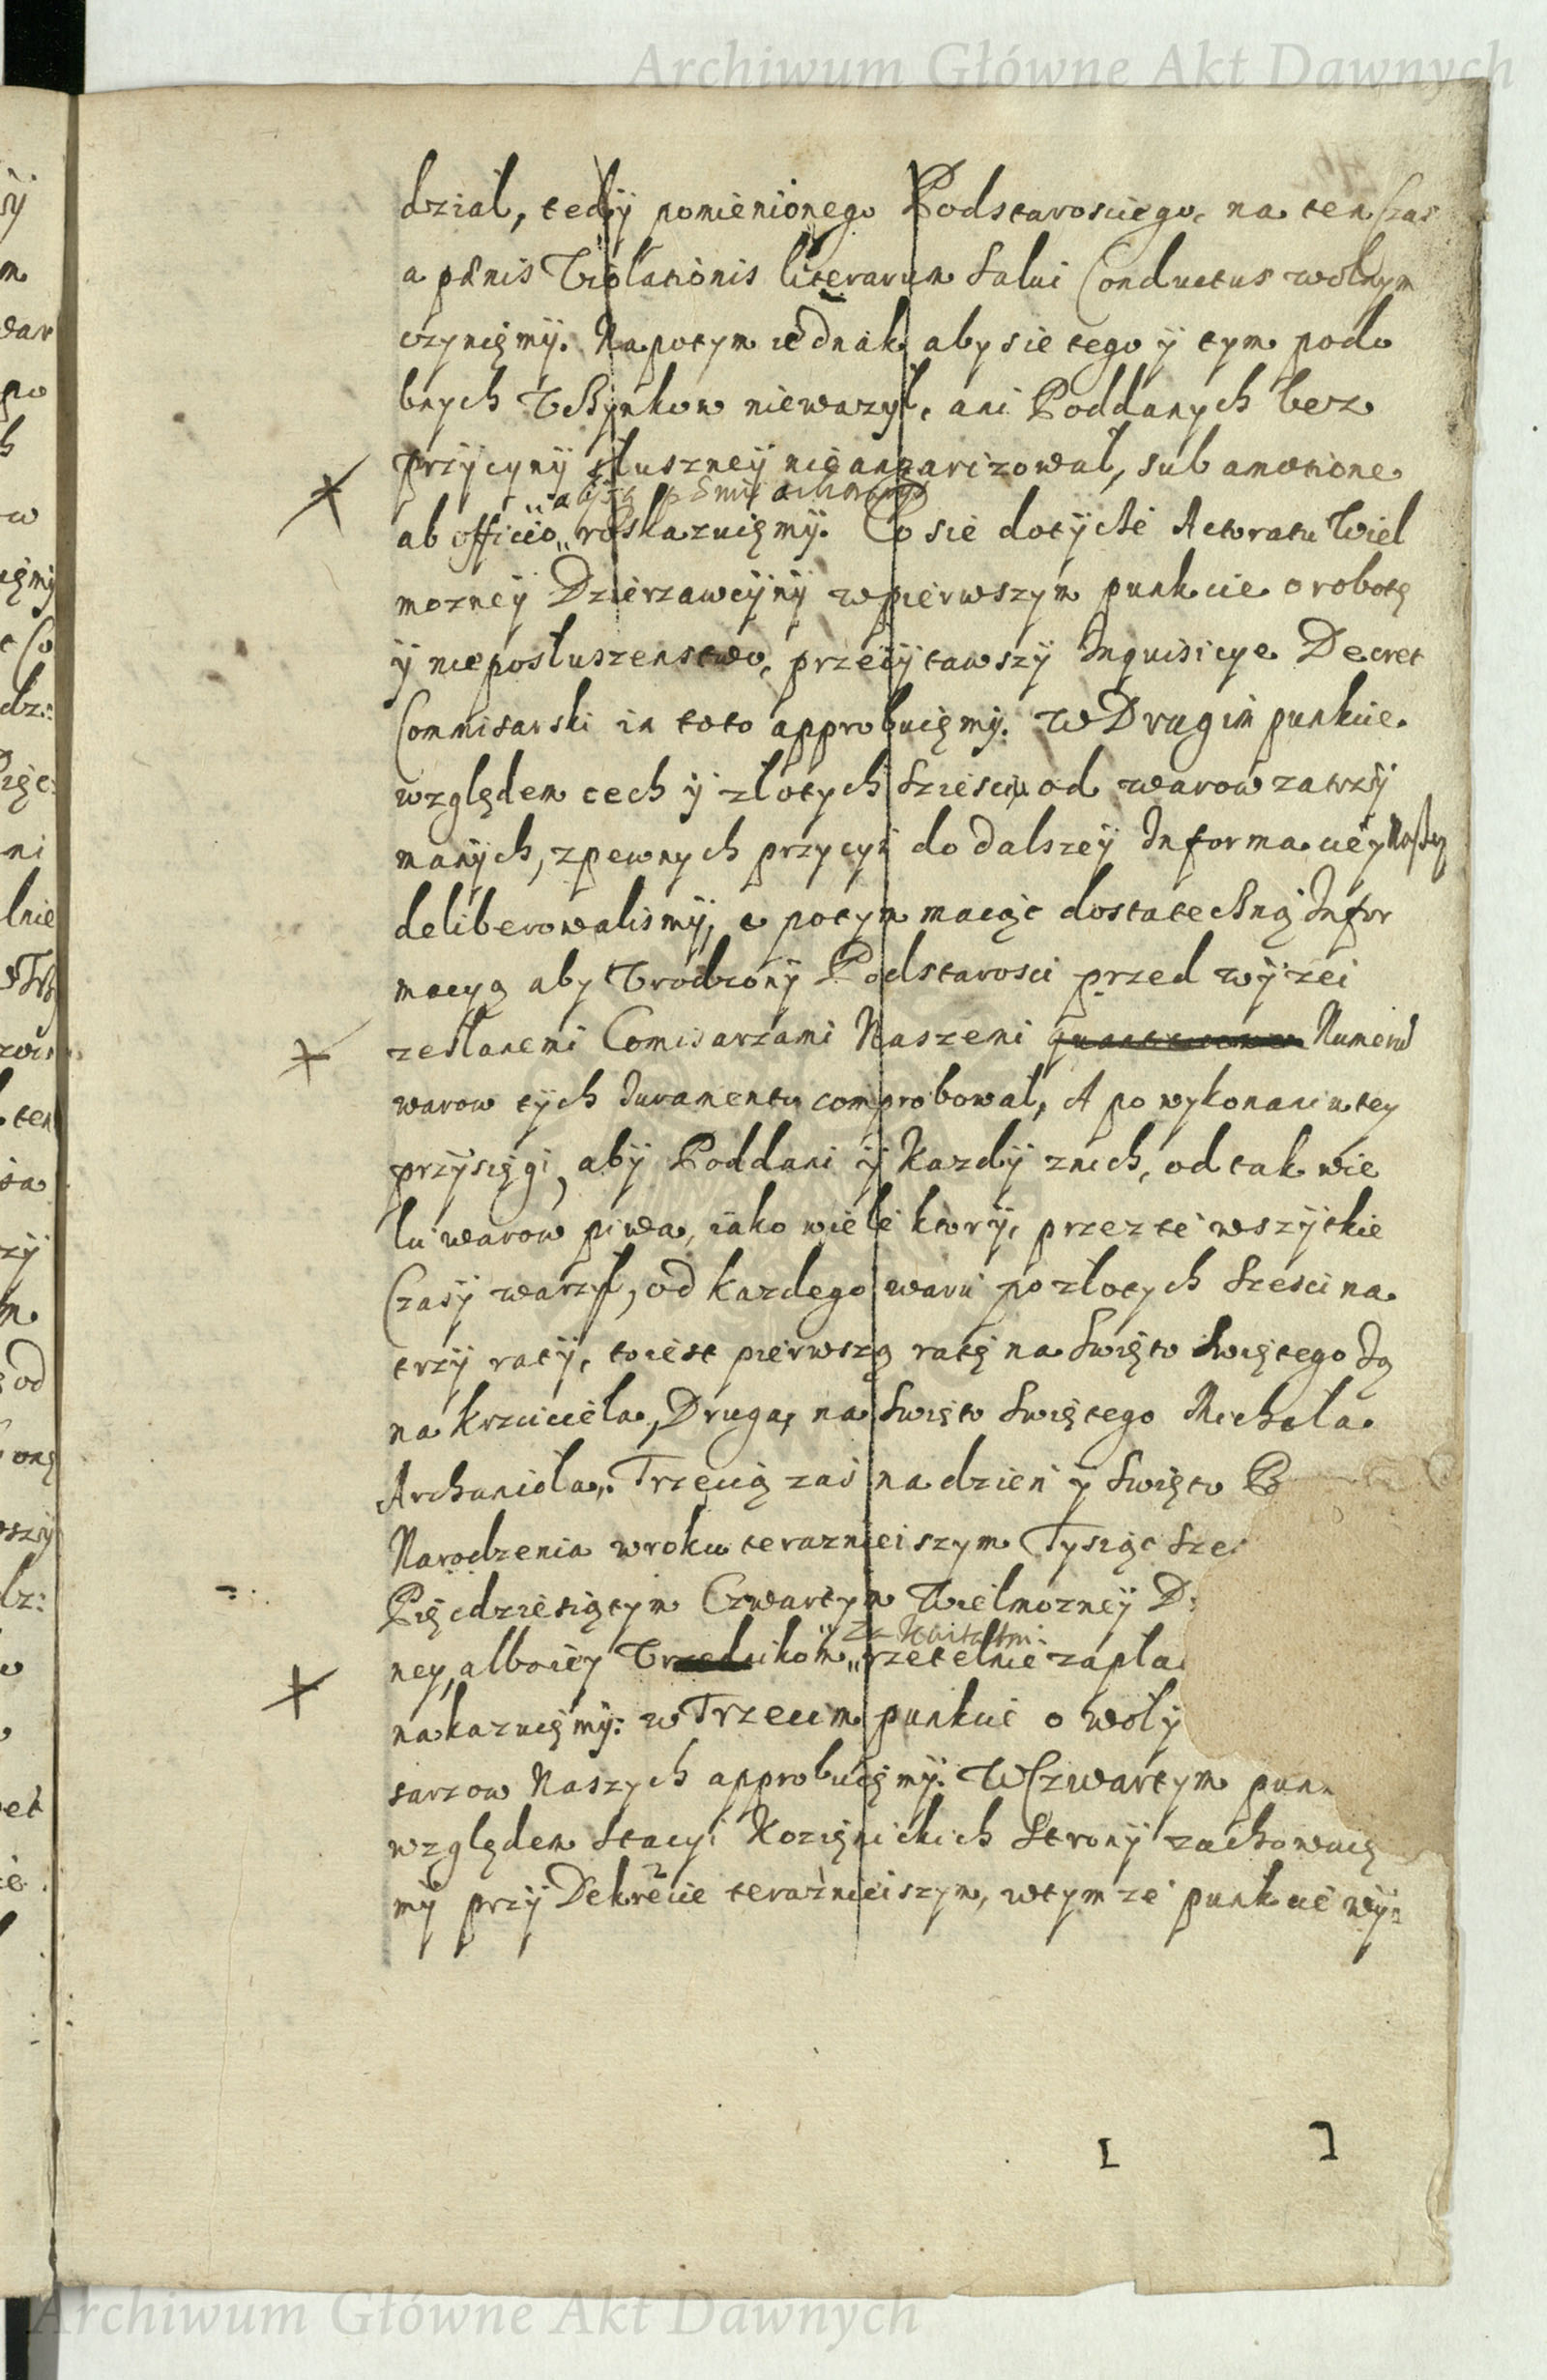 Archiwum Główne Akt Dawnych
dział, tedy pomienionego Podstarosciego, na ten czas
a pænis Violationis literarum Salui Conductus wolnym
czynięmy. Napotym iednak aby sie tego y tym podo
bnych Vczynkow nieważył, ani Poddanych bez
przyczyny słuszney nieangarizował, sub amotione
ab officio roskazuięmy. Co sie dotycze Actoratu Wiel
mozney Dzierzawczyny w pierwszym punkcie o robotę
y nieposłuszenstwo, przeczytawszy Inquisicye Decret
Commisarski in toto approbuięmy. W Drugim punkcie
względem cech y złotych sześciu od warow zatrzy
manych, z pewnych przyczyn do dalszey Informaciey Naszey
deliberowalismy, a potym maiąc dostateczną Infor
macyą aby Vrodzony Podstarosci przed wyżei
zesłanemi Comisarzami Naszemi Numerum
warow tych Iuramento comprobował, A po wykonaniu tey
przysięgi, aby Poddani y kazdy z nich, od tak wie
lu warow piwa, iako wiele ktory, przez te wszytkie
Czasy warzył, od kazdego waru po złotych sześci na
trzy raty, to iest pierwszą ratę na Swięto Swiętego Ja
na krzciciela, Drugą, na Swięto Swiętego Michała
Archanioła, Trzecią zas na dzien y Swięto B
Narodzenia w roku teraznieiszym Tysiąc Sze
Pięcdziesiątym Czwartym Wielmozney D
za kwitami
ney, albo iey rzetelnie zapła
nakazuięmy: w Trzecim punkcie o woły
sarzow Naszych approbuięmy. W Czwartym pun
względem Stacyi Kozięnickich Strony zachowuię
my przy Dekrecie teraznieiszym, w tym ze punkcie wy:
Archiwum Główne Akt Dawnych